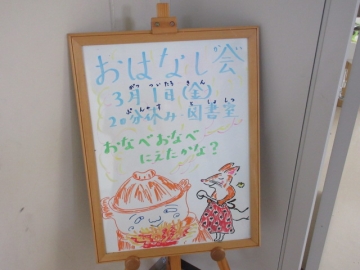 おはなし会
3月1日(金)
20分休み 図書室
おなべおなべ
にえたかな?